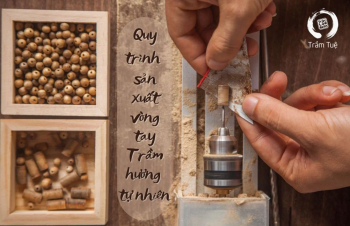 Quy
trình
sản
xuất
vòng
tay
Trầm
hương
tự nhiên
Trầm Tuệ